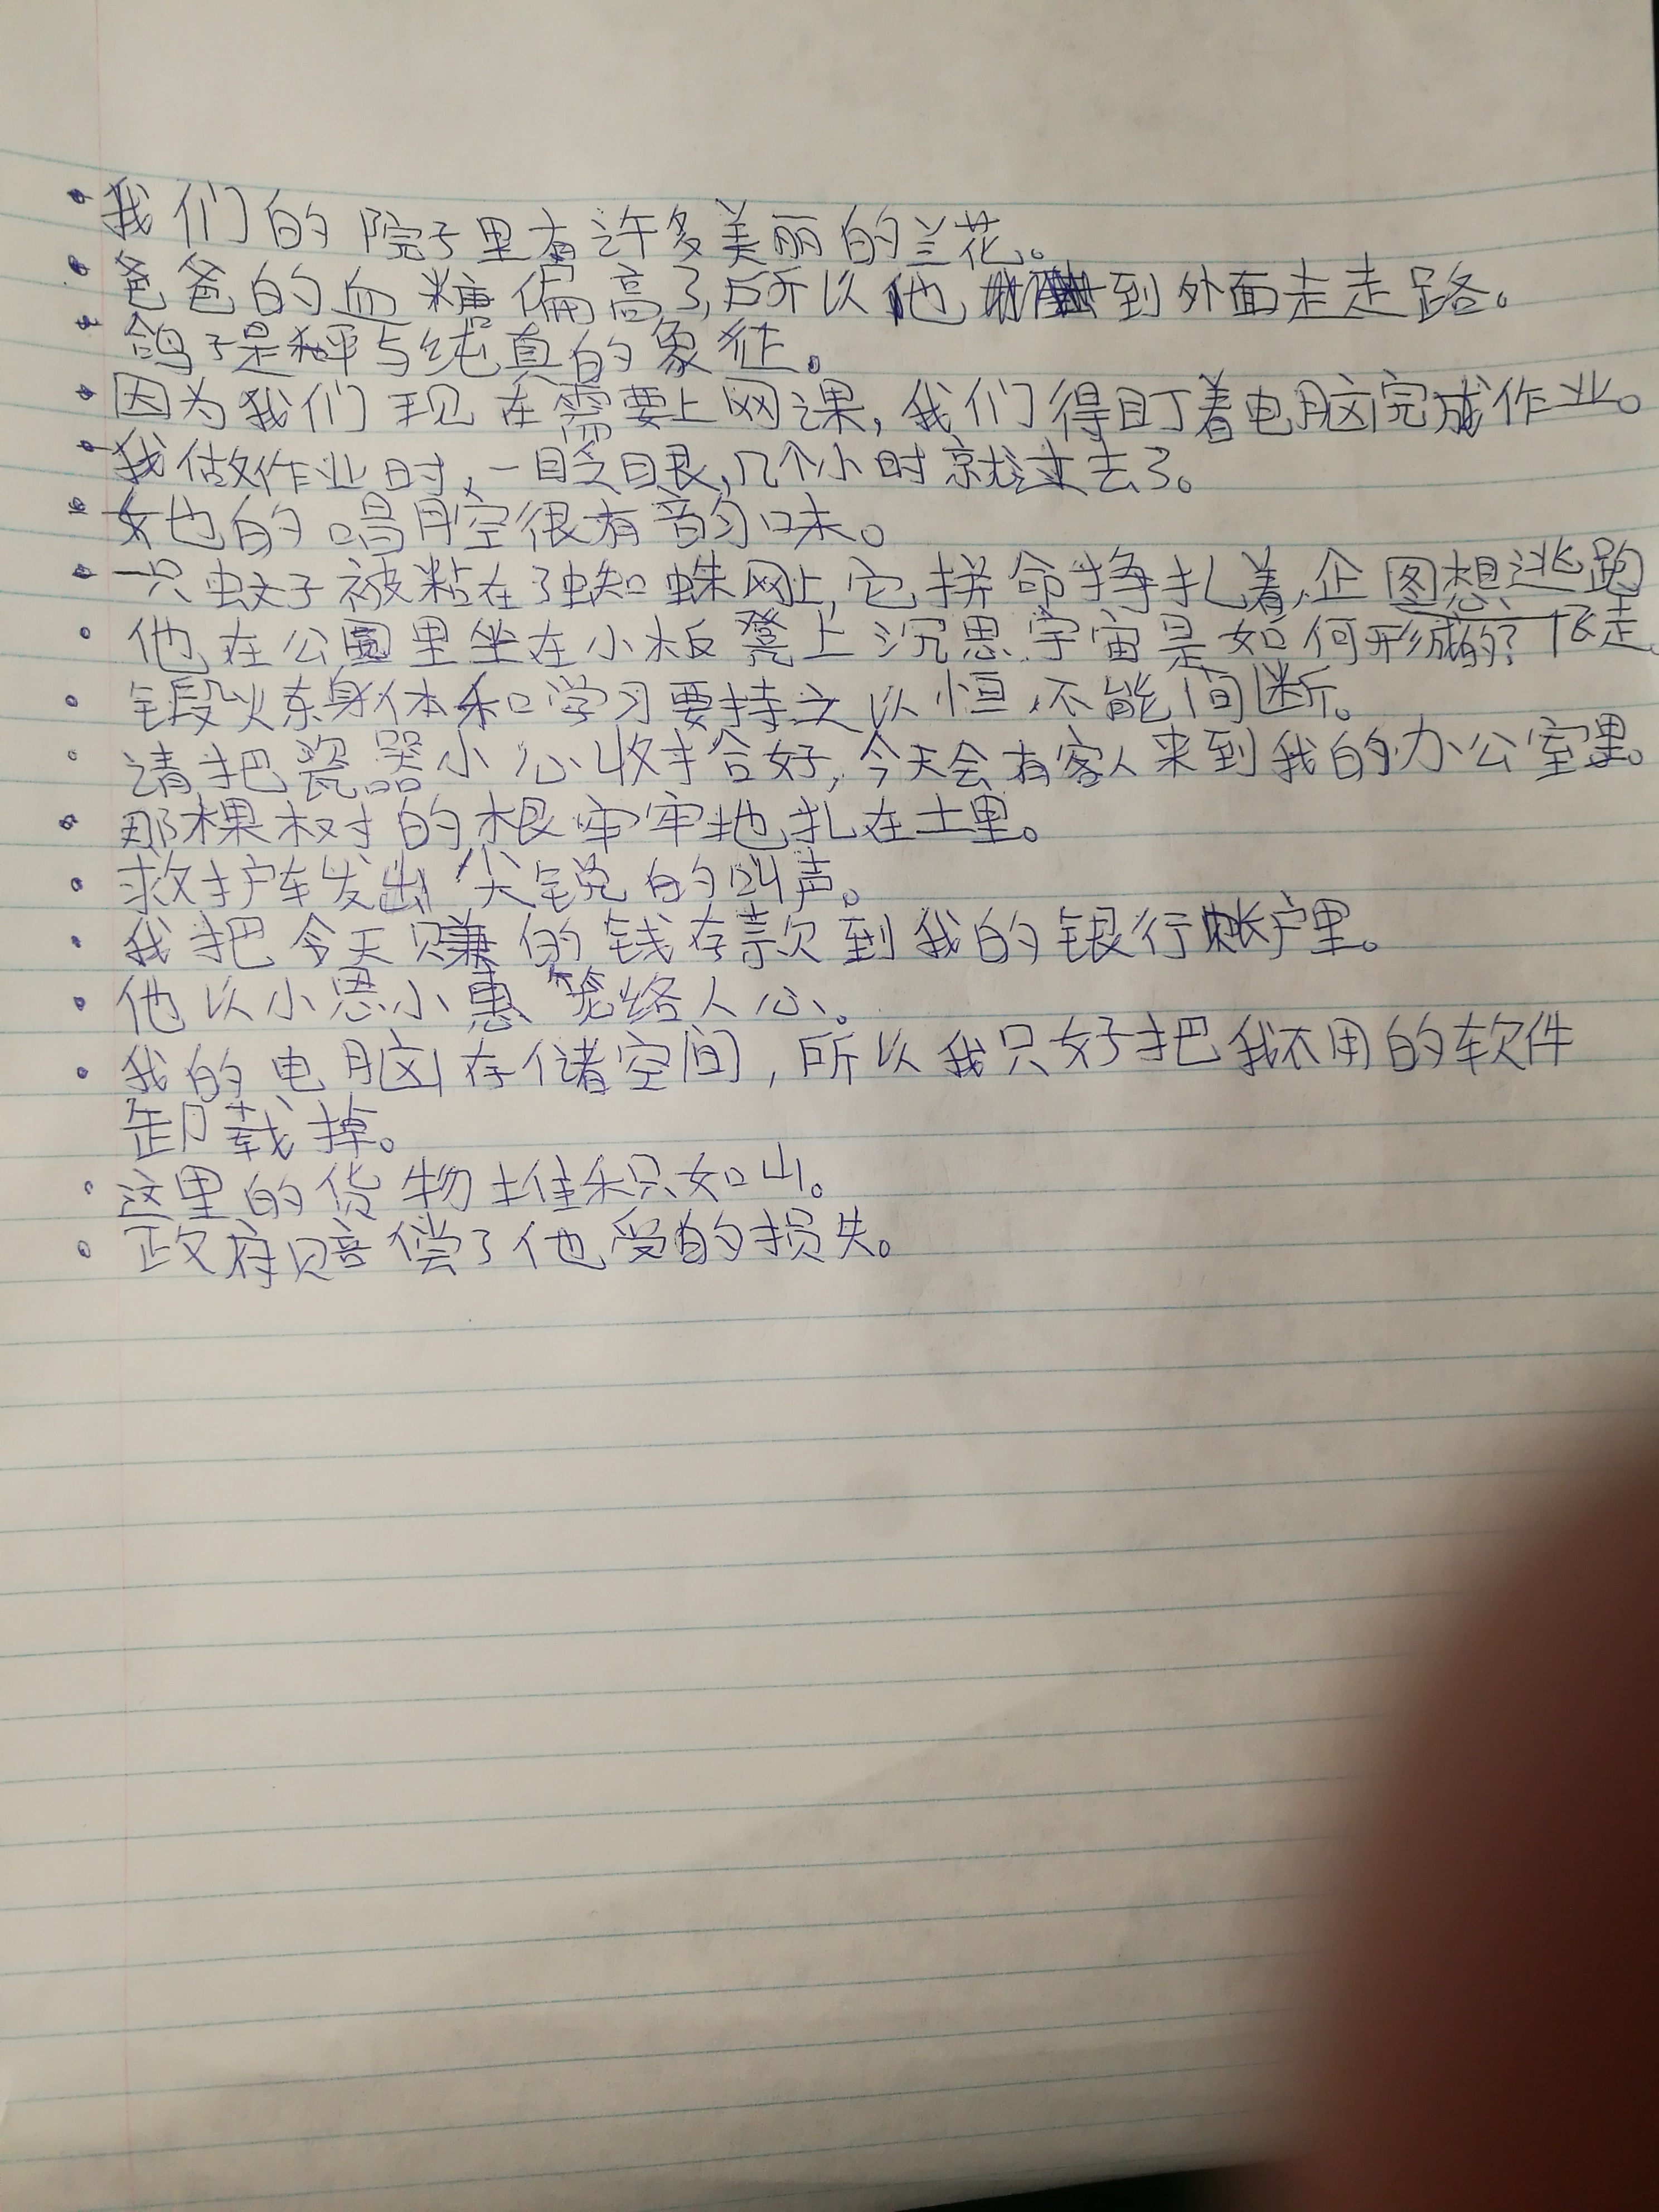 我们的院子里有许多美丽的兰花。
爸爸的血糖偏高了,所以他到外面走走路。
鸽子是和平与纯真的象征。
因为我们现在需要上网课,我们得盯着电脑完成作业。
我做作业时,一眨眼,几个小时就过去了。
她的唱腔很有韵味。
一只蚊子被粘在了蜘蛛网上,它拼命挣扎着,企图想逃跑
飞走。
他在公园里坐在小板凳上沉思宇宙是如何形成的?
锻炼身体和学习要持之以恒,不能间断。
请把瓷器小心收拾好,今天会有客人来到我的办公室里。
那棵树的根牢牢地扎在土里。
救护车发出尖锐的叫声。
我把今天赚的钱存款到我的银行帐户里。
他以小恩小惠笼络人心。
我的电脑存储空间,所以我只好把我不用的软件
卸载掉。
这里的货物堆积如山。
政府赔偿了他受的损失。